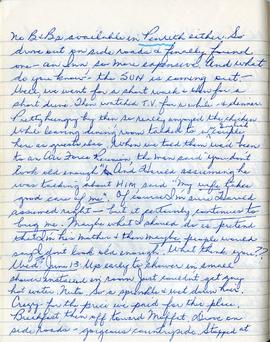 No B&B's available in Penrith either. So
drove out on side roads & finally found
one - an Inn so more expensive. And what
do you know - the SUN is coming out -
Well, we went for a short walk & then for a
short drive. Then watched T.V. for a while & dinner.
Pretty hungry by then so really enjoyed the chicken.
While leaving dining room talked to a couple
here as guests also. When we told them we'd been
to an Air Force Reunion the man said "you don't
look old enough" And assuming he
was talking about HIM said "My wife takes
good care of me". Of course I'm sure
assumed right - but it certainly continues to
bug me. Maybe what I should do is pretend
that I'm his mother & then maybe people would
say I don't look old enough. What think you??
Wed. June 13. Up early to shower in small
shower installed in room. Just couldn't get any
hot water. Nuts. So a sprinkle & wet down hair.
Crazy for the price we paid for this place.
Breakfast then off toward Moffat. Drove on
side roads - gorgeous countryside. Stopped at